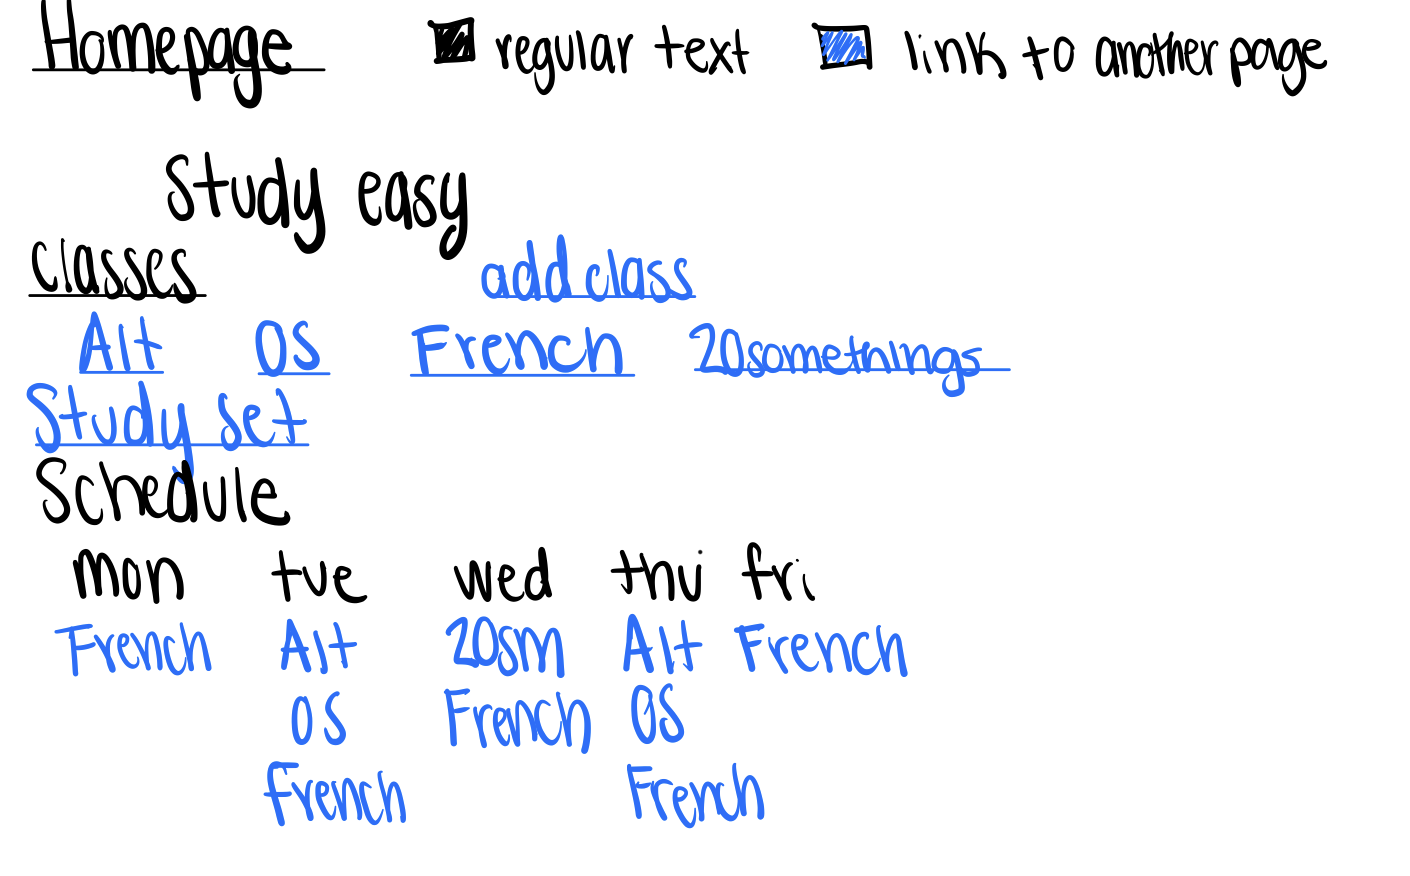 Homepage regular text link to another page
Study easy
classes add class
Alt OS French 20somethings
Study set
Schedule
mon tue wed thu fri
French Alt 20sm Alt French
OS French OS
French French